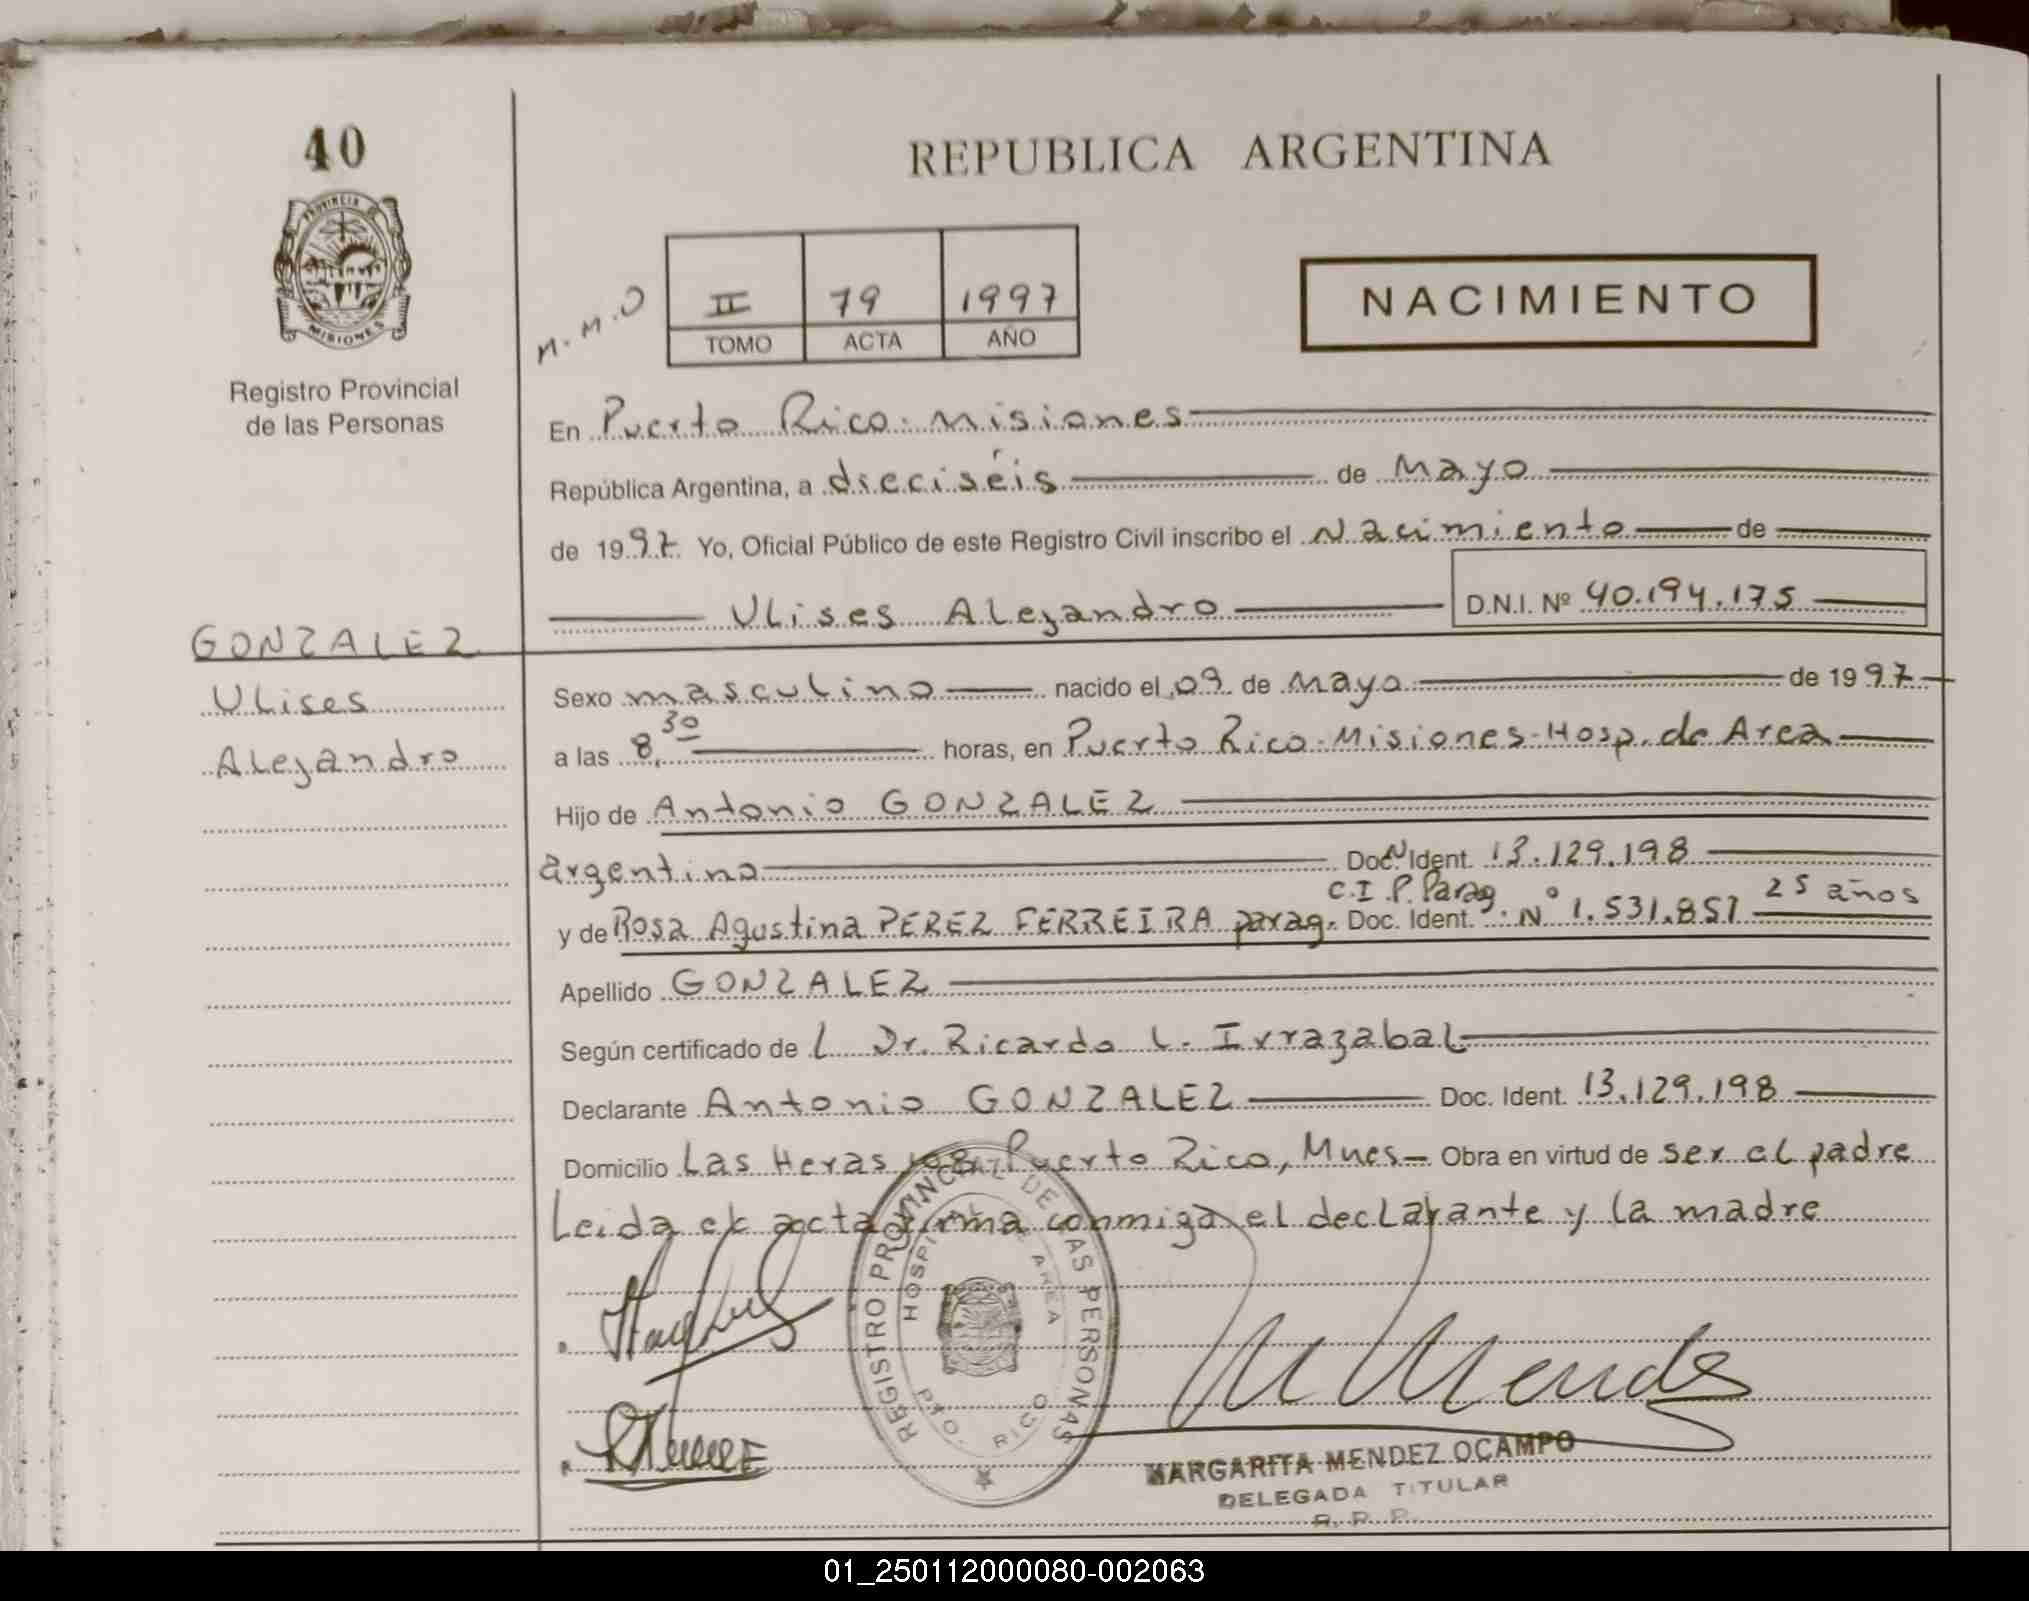 40
REPUBLICA ARGENTINA
PROVINCIA DE
MISIONES
Registro Provincial
de las Personas
M.M.O
II 79 1997
TOMO ACTA AÑO
NACIMIENTO
En Puerto Rico - Misiones
República Argentina, a dieciséis de Mayo
de 1997. Yo, Oficial Público de este Registro Civil inscribo el Nacimiento de
Ulises Alejandro D.N.I. Nº 40.194.175
GONZALEZ
Ulises
Alejandro
Sexo masculino nacido el 09 de Mayo de 1997
a las 8,30 horas, en Puerto Rico - Misiones - Hosp. de Area
Hijo de Antonio GONZALEZ
argentino Doc. N Ident. 13.129.198
C.I.P. Parag 25 años
y de Rosa Agustina PEREZ FERREIRA parag. Doc. Ident. Nº 1.531.857
Apellido GONZALEZ
Según certificado de l Dr. Ricardo L. Irrazabal
Declarante Antonio GONZALEZ Doc. Ident. 13.129.198
Domicilio Las Heras 198 Puerto Rico, Mnes Obra en virtud de ser el padre
Leida el acta firma conmigo el declarante y la madre
REGISTRO PROVINCIAL DE LAS PERSONAS
HOSPITAL DE AREA
PTO. RICO
M Mendez
MARGARITA MENDEZ OCAMPO
DELEGADA TITULAR
R. P. P.
01_250112000080-002063